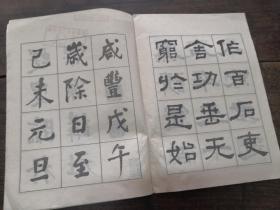 作百石吏
舍功垂无
窮於是始
咸豐戊午
歲除日至
己未元旦